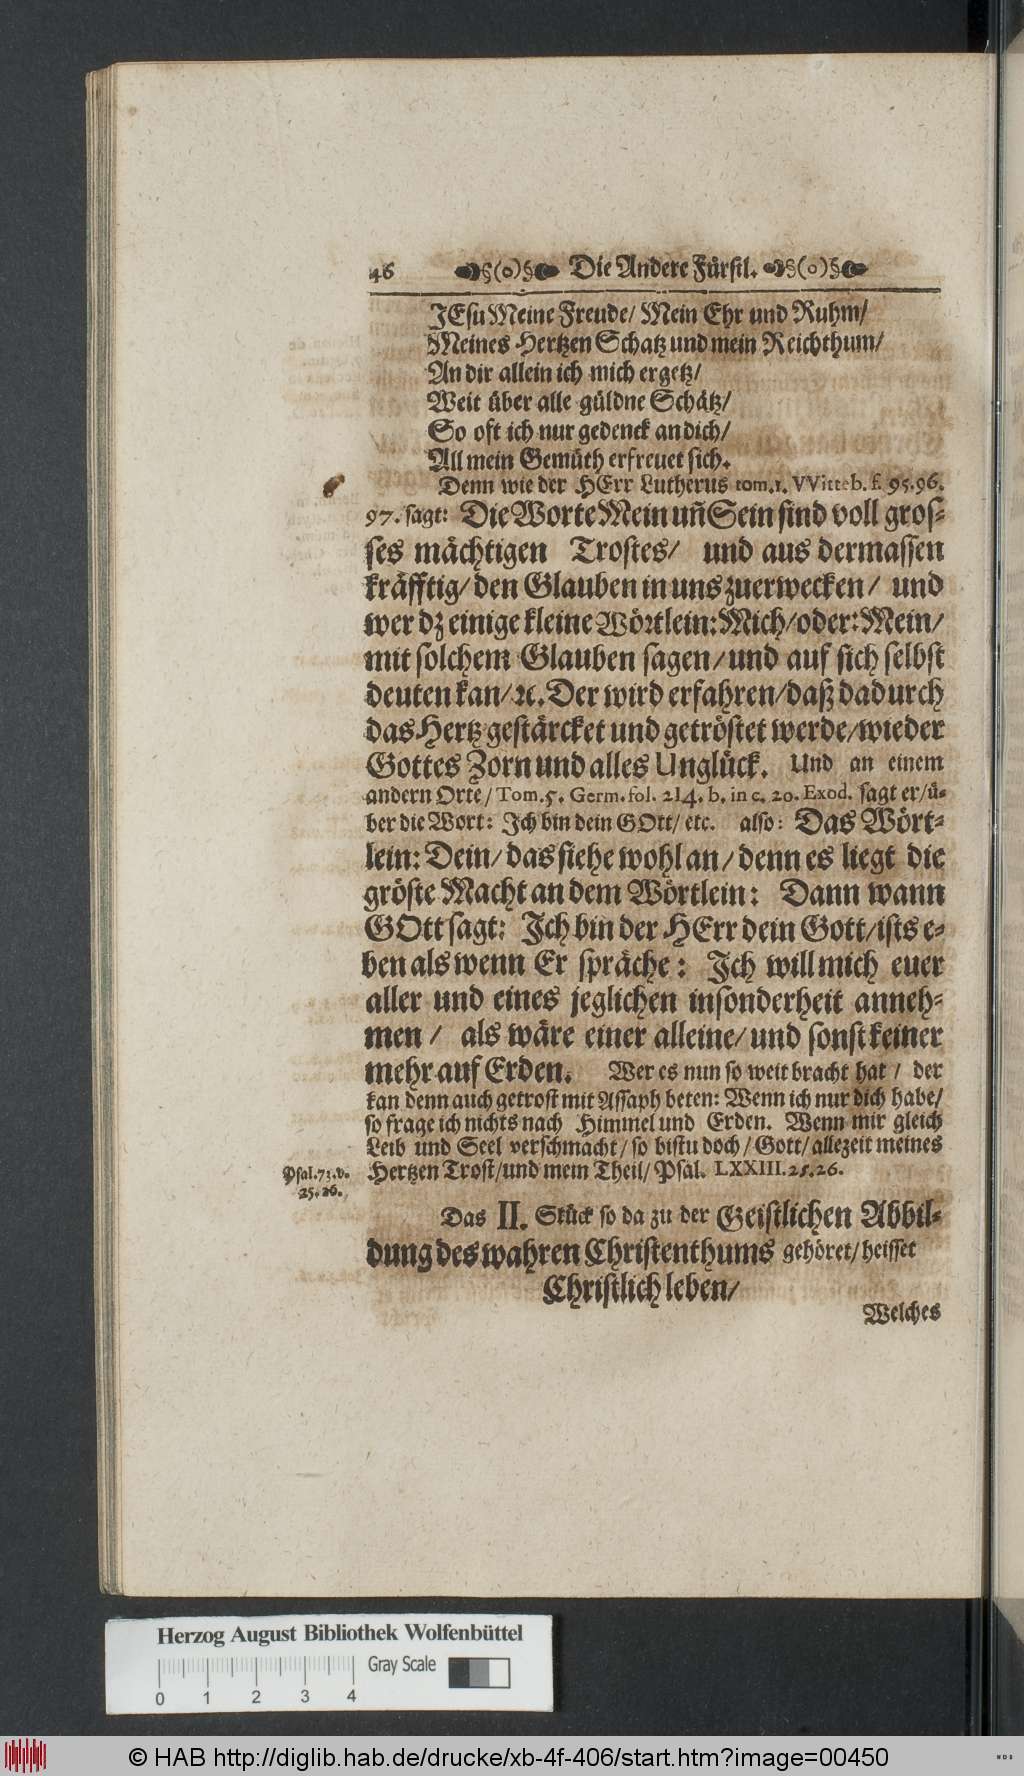 46 §(o)§ Die Andere Fürstl. §(o)§
JEsu Meine Freude/ Mein Ehr und Ruhm/
Meines Hertzen Schatz und mein Reichthum/
An dir allein ich mich ergetz/
Weit über alle güldne Schätz/
So oft ich nur gedenck an dich/
All mein Gemüth erfreuet sich.
Denn wie der HErr Lutherus tom.1. VVitteb. f. 95.96.
97. sagt: Die Worte Mein uñ Sein sind voll gros-
ses mächtigen Trostes/ und aus dermassen
kräfftig/ den Glauben in uns zuerwecken/ und
wer dz einige kleine Wörtlein: Mich/ oder: Mein/
mit solchem Glauben sagen/ und auf sich selbst
deuten kan/ ꝛc. Der wird erfahren/ daß dadurch
das Hertz gestärcket und getröstet werde/ wieder
Gottes Zorn und alles Unglück. Und an einem
andern Orte/ Tom.5. Germ. fol. 214. b. in c. 20. Exod. sagt er/ ü-
ber die Wort: Ich bin dein GOtt/ etc. also: Das Wört-
lein: Dein/ das siehe wohl an/ denn es liegt die
gröste Macht an dem Wörtlein: Dann wann
GOtt sagt: Ich bin der HErr dein Gott/ ists e-
ben als wenn Er spräche: Ich will mich euer
aller und eines jeglichen insonderheit anneh-
men/ als wäre einer alleine/ und sonst keiner
mehr auf Erden. Wer es nun so weit bracht hat/ der
kan denn auch getrost mit Assaph beten: Wenn ich nur dich habe/
so frage ich nichts nach Himmel und Erden. Wenn mir gleich
Leib und Seel verschmacht/ so bistu doch/ Gott/ allezeit meines
Hertzen Trost/ und mein Theil/ Psal. LXXIII. 25.26.
Psal. 73. v.
25. 26.
Das II. Stück so da zu der Geistlichen Abbil-
dung des wahren Christenthums gehöret/ heisset
Christlich leben/
Welches
Herzog August Bibliothek Wolfenbüttel
Gray Scale
0 1 2 3 4
© HAB http://diglib.hab.de/drucke/xb-4f-406/start.htm?image=00450